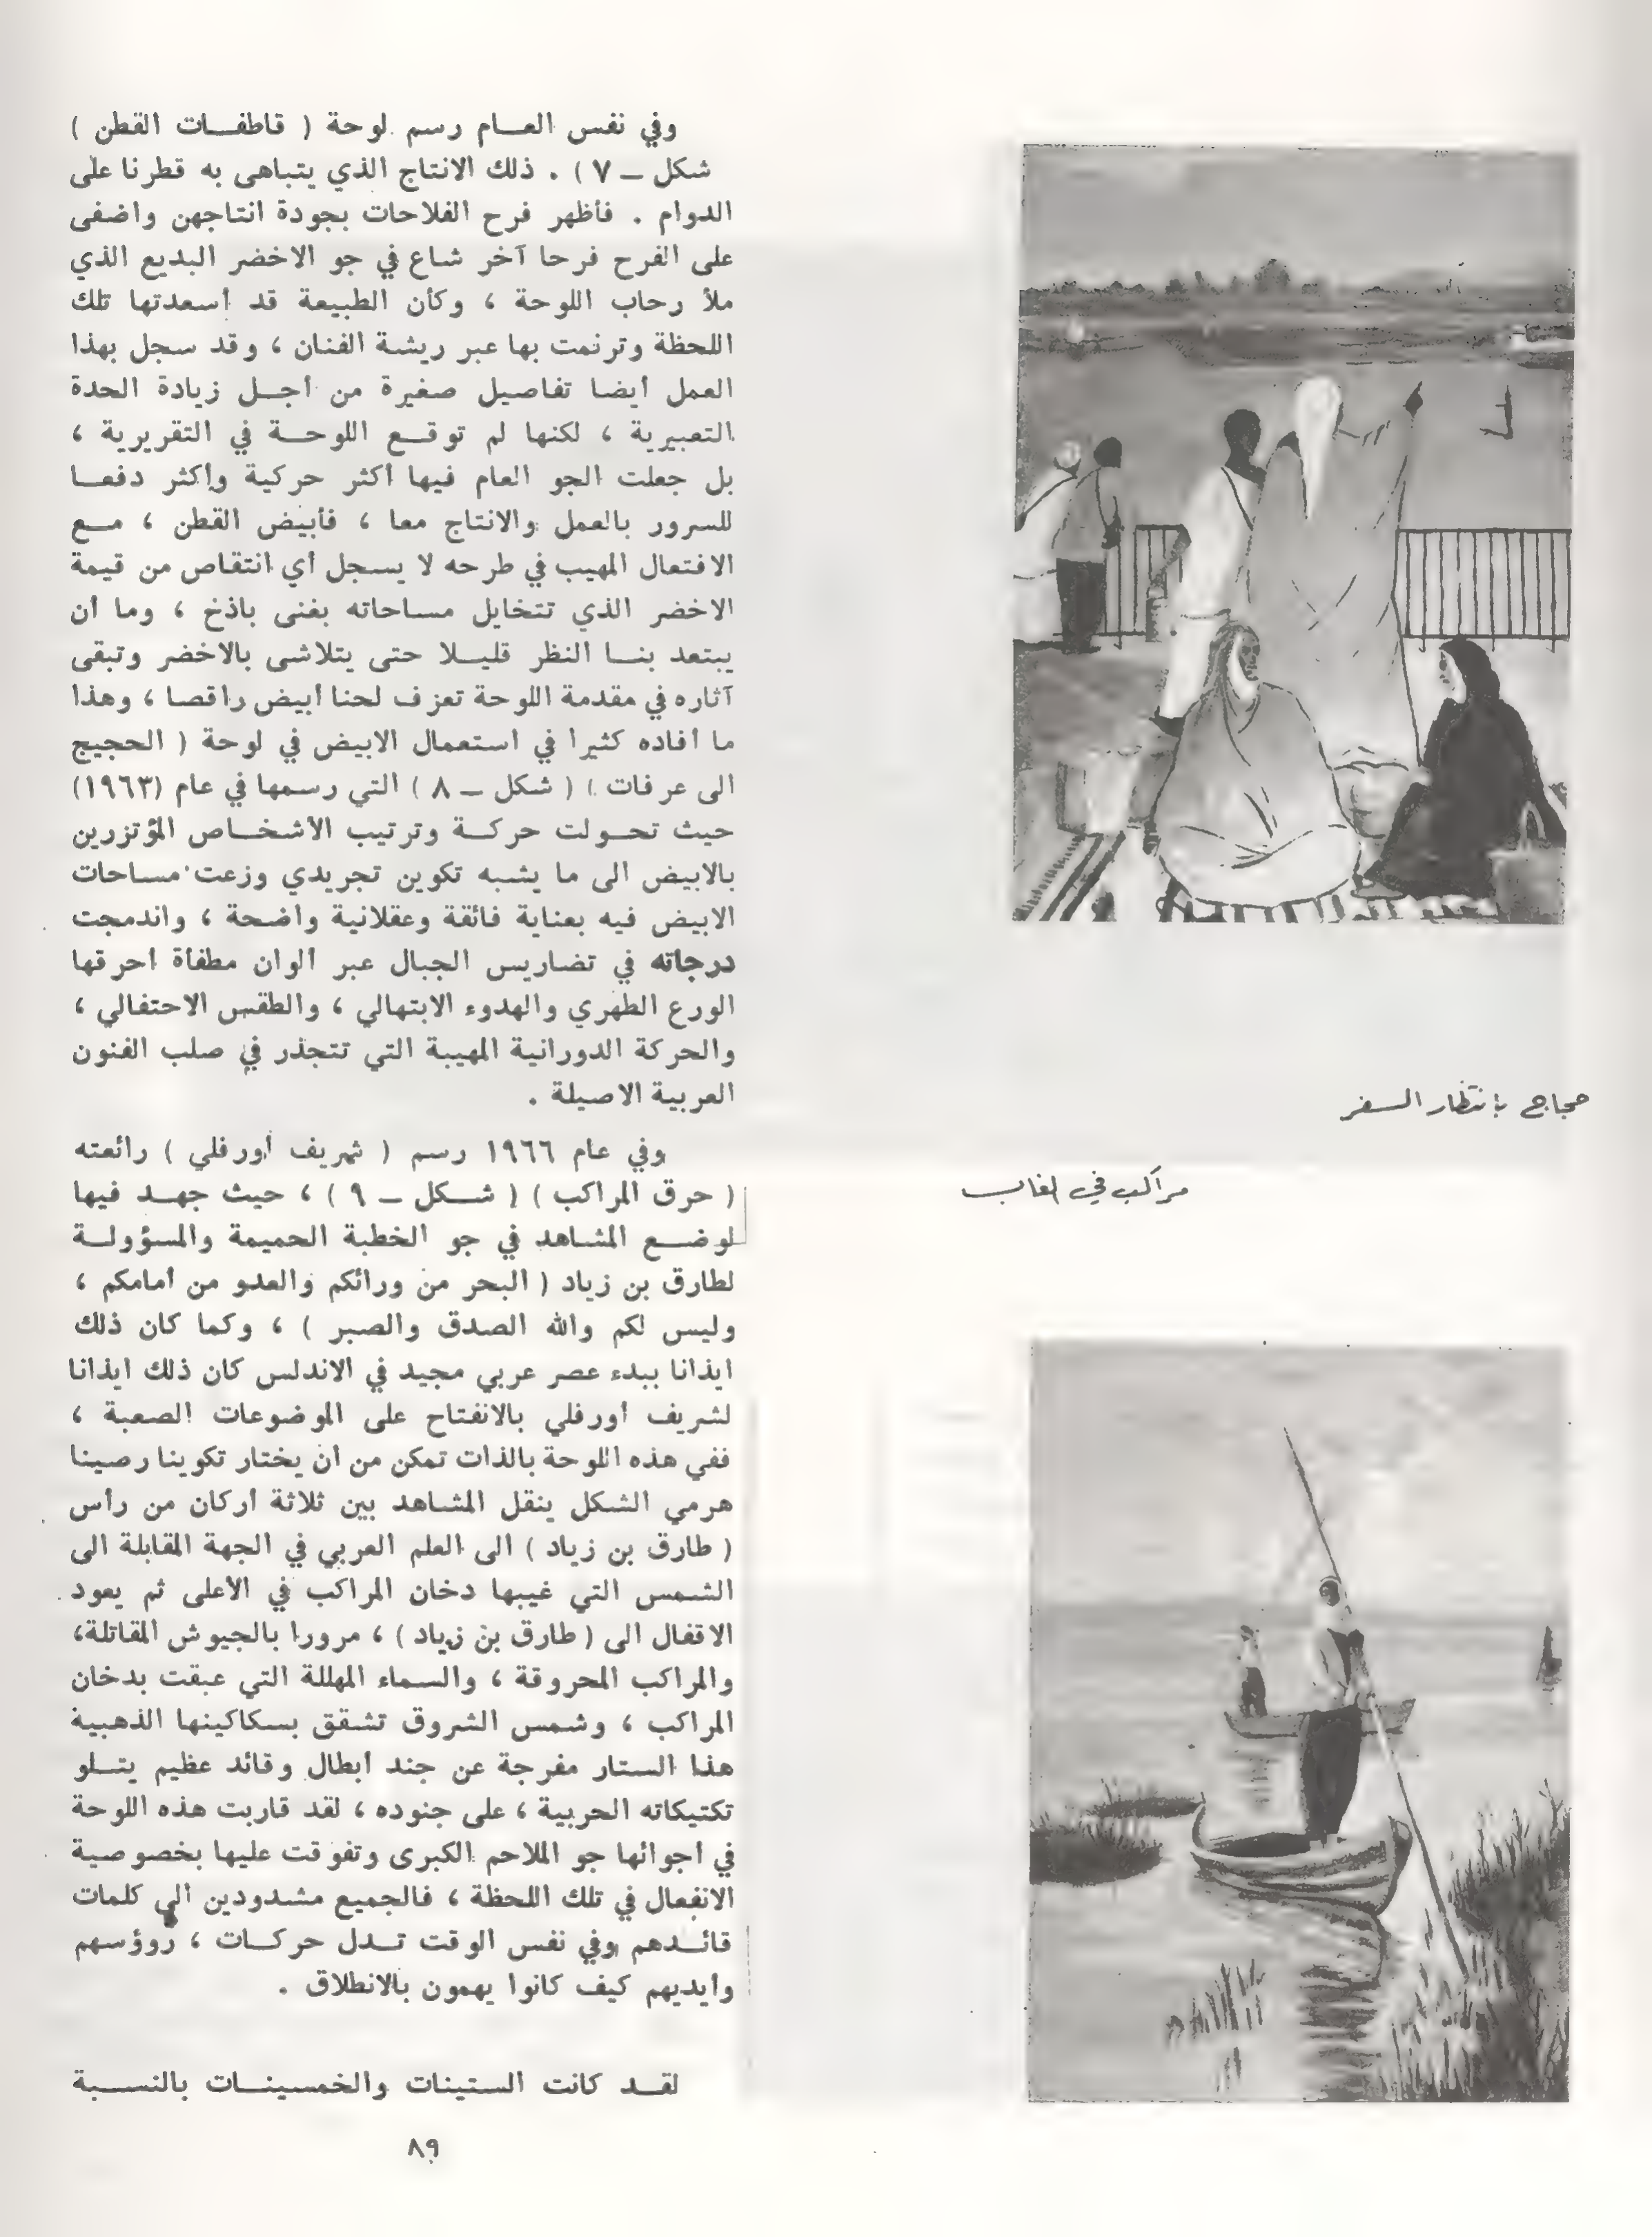 وفي نفس العــام رسم لوحة ( قاطفــات القطن )
شكل ــ ٧ ) . ذلك الانتاج الذي يتباهى به قطرنا على
الدوام . فأظهر فرح الفلاحات بجودة انتاجهن واضفى
على الفرح فرحا آخر شاع في جو الاخضر البديع الذي
ملأ رحاب اللوحة ، وكأن الطبيعة قد أسعدتها تلك
اللحظة وترنمت بها عبر ريشة الفنان ، وقد سجل بهذا
العمل أيضا تفاصيل صغيرة من أجــل زيادة الحدة
التعبيرية ، لكنها لم توقــع اللوحــة في التقريرية ،
بل جعلت الجو العام فيها أكثر حركية وأكثر دفعــا
للسرور بالعمل والانتاج معا ، فأبيض القطن ، مــع
الافتعال المهيب في طرحه لا يسجل أي انتقاص من قيمة
الاخضر الذي تتخايل مساحاته بغنى باذخ ، وما أن
يبتعد بنــا النظر قليــلا حتى يتلاشى بالاخضر وتبقى
آثاره في مقدمة اللوحة تعزف لحنا أبيض راقصا ، وهذا
ما أفاده كثيرا في استعمال الابيض في لوحة ( الحجيج
الى عرفات ) ( شكل ــ ٨ ) التي رسمها في عام (١٩٦٣)
حيث تحــولت حركــة وترتيب الأشخــاص المؤتزرين
بالابيض الى ما يشبه تكوين تجريدي وزعت مساحات
الابيض فيه بعناية فائقة وعقلانية واضحة ، واندمجت
درجاته في تضاريس الجبال عبر ألوان مطفأة أحرقها
الورع الطهري والهدوء الابتهالي ، والطقس الاحتفالي ،
والحركة الدورانية المهيبة التي تتجذر في صلب الفنون
العربية الاصيلة .
وفي عام ١٩٦٦ رسم ( شريف أورفلي ) رائعته
( حرق المراكب ) ( شــكل ــ ٩ ) ، حيث جهــد فيها
لوضــع المشاهد في جو الخطبة الحميمة والمسؤولــة
لطارق بن زياد ( البحر من ورائكم والعدو من أمامكم ،
وليس لكم والله الصدق والصبر ) ، وكما كان ذلك
ايذانا ببدء عصر عربي مجيد في الاندلس كان ذلك ايذانا
لشريف أورفلي بالانفتاح على الموضوعات الصعبة ،
ففي هذه اللوحة بالذات تمكن من أن يختار تكوينا رصينا
هرمي الشكل ينقل المشاهد بين ثلاثة أركان من رأس
( طارق بن زياد ) الى العلم العربي في الجهة المقابلة الى
الشمس التي غيبها دخان المراكب في الأعلى ثم يعود
الاقفال الى ( طارق بن زياد ) ، مرورا بالجيوش المقاتلة،
والمراكب المحروقة ، والسماء المهللة التي عبقت بدخان
المراكب ، وشمس الشروق تشقق بسكاكينها الذهبية
هذا الستار مفرجة عن جند أبطال وقائد عظيم يتــلو
تكتيكاته الحربية ، على جنوده ، لقد قاربت هذه اللوحة
في أجوائها جو الملاحم الكبرى وتفوقت عليها بخصوصية
الانفعال في تلك اللحظة ، فالجميع مشدودين الى كلمات
قائــدهم وفي نفس الوقت تــدل حركــات ، روؤسهم
وأيديهم كيف كانوا يهمون بالانطلاق .
لقــد كانت الستينات والخمسينــات بالنســبة
٨٩
حجاج بانتظار السفر
مراكب في الغاب